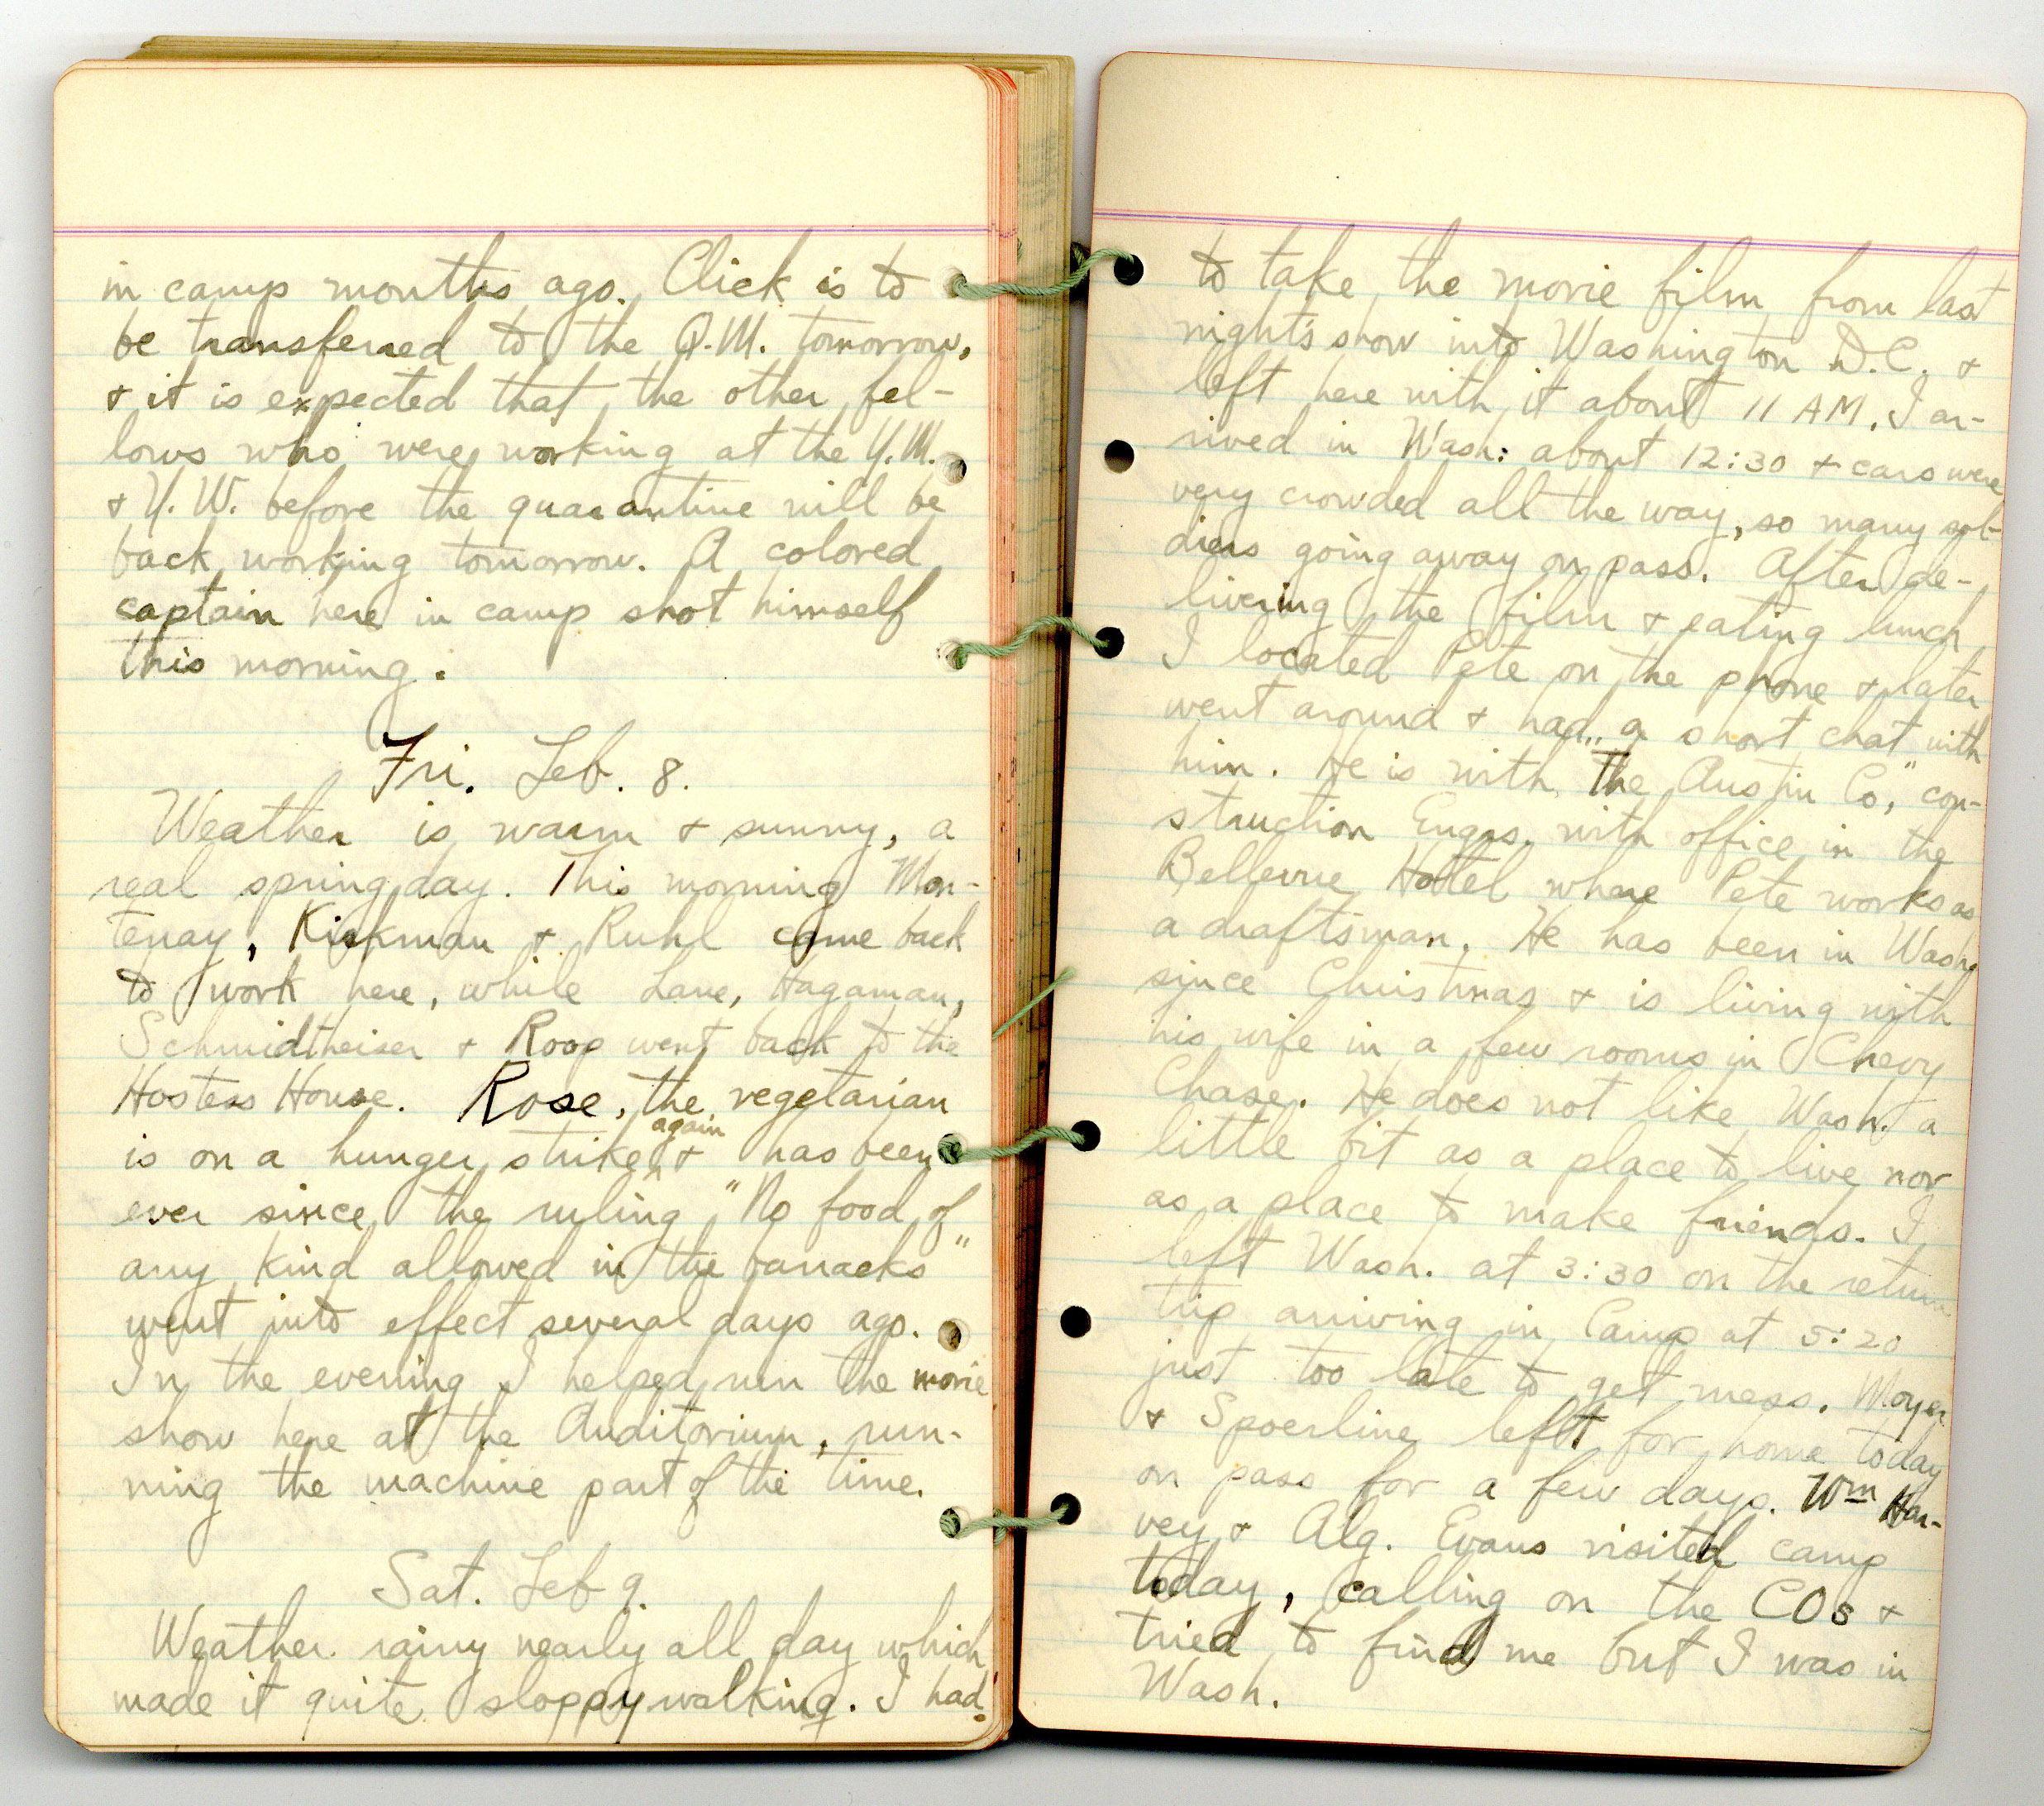 in camp months ago. Click is to
be transferred to the Q.M. tomorrow,
& it is expected that the other fel-
lows who were working at the Y.M.
& Y.W. before the quarantine will be
back working tomorrow. A colored
captain here in camp shot himself
this morning.
Fri. Feb. 8.
Weather is warm & sunny, a
real spring day. This morning Mon-
tenay, Kirkman & Ruhl came back
to work here, while Lane, Hagaman,
Schmidtheiser & Roop went back to the
Hostess House. Rose, the vegetarian
again
is on a hunger strike & has been
ever since the ruling "No food of
any kind allowed in the barracks"
went into effect several days ago.
In the evening I helped run the movie
show here at the Auditorium, run-
ning the machine part of the time.
Sat. Feb 9.
Weather rainy nearly all day which
made it quite sloppy walking. I had
to take the movie film from last
night's show into Washington D.C. &
left here with it about 11 AM. I ar-
rived in Wash: about 12:30 & cars were
very crowded all the way, so many sol-
diers going away on pass. After de-
livering the film & eating lunch
I located Pete on the phone & later
went around & had a short chat with
him. He is with "The Austin Co," con-
struction Engrs. with office in the
Bellevue Hotel where Pete works as
a draftsman. He has been in Wash.
since Christmas & is living with
his wife in a few rooms in Chevy
Chase. He does not like Wash. a
little bit as a place to live nor
as a place to make friends. I
left Wash. at 3:30 on the return
trip arriving in Camp at 5:20
just too late to get mess. Moyer
& Spoerline left for home today
on pass for a few days. Wm Har-
vey & Alg. Evans visited camp
today, calling on the COs &
tried to find me but I was in
Wash.